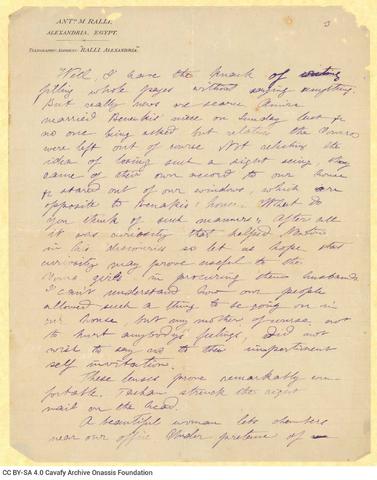 ANTᵒ M RALLI.
ALEXANDRIA, EGYPT.
TELEGRAPHIC ADDRESS: "RALLI ALEXANDRIA"
3
Well, I have the knack of writing
filling whole pages without saying anything.
But really news we scarce
married Benachi's niece on Sunday last &
no one being asked but relatives the
were left out of course. Not relishing the
idea of losing such a sight being, they
came of their own accord to our house
& stared out of our windows, which are
opposite to Benakis' house. What do
you think of such manners; After all
it was curiosity that helped Newton
in his discoveries so let us hope that
curiosity may prove useful to the
girls in procuring them husbands
I can't understand how our people
allowed such a thing to be going on in
our house, but my mother of course, not
to hurt anybody's feelings, did not
wish to say no to their impertinent
self invitation.
These lenses prove remarkably com-
fortable. struck the right
nail on the head.
A beautiful woman lets chambers
near our office. Under pretence of
CC BY-SA 4.0 Cavafy Archive Onassis Foundation